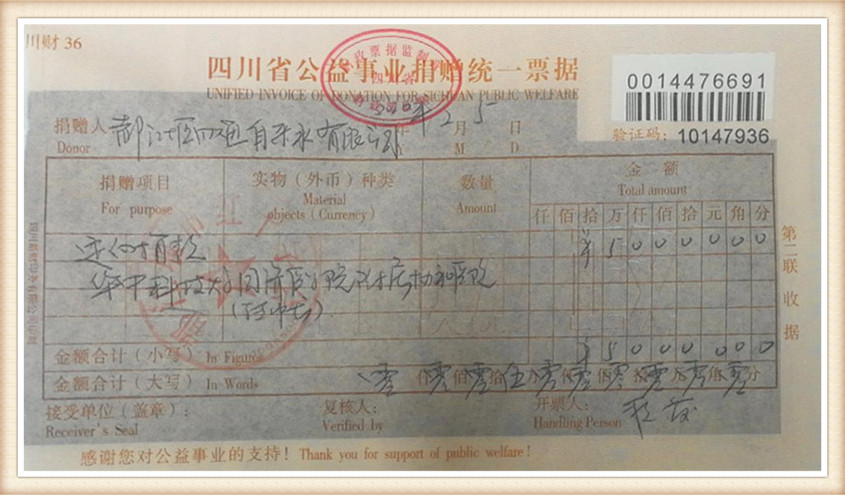 川财 36
四川省公益事业捐赠统一票据
UNIFIED INVOICE OF DONATION FOR SICHUAN PUBLIC WELFARE
0014476691
验证码: 10147936
捐赠人 都江堰四通自来水有限公司 年 2 月 5 日
Donor Y M D
捐赠项目 实物（外币）种类 数量 金额
For purpose Material objects (Currency) Amount Total amount
仟 佰 拾 万 仟 佰 拾 元 角 分
定向捐款 ¥ 5 0 0 0 0 0 0
华中科技大 同济医学院附属协和医院
金额合计（小写）In Figures ¥ 5 0 0 0 0 0 0
金额合计（大写）In Words 零 仟 零 佰 零 拾 伍 万 零 仟 零 佰 零 拾 零 元 零 角 零 分
接受单位（盖章）： 复核人： 开票人：
Receiver's Seal Verified by Handling Person
感谢您对公益事业的支持！ Thank you for support of public welfare!
第二联 收据